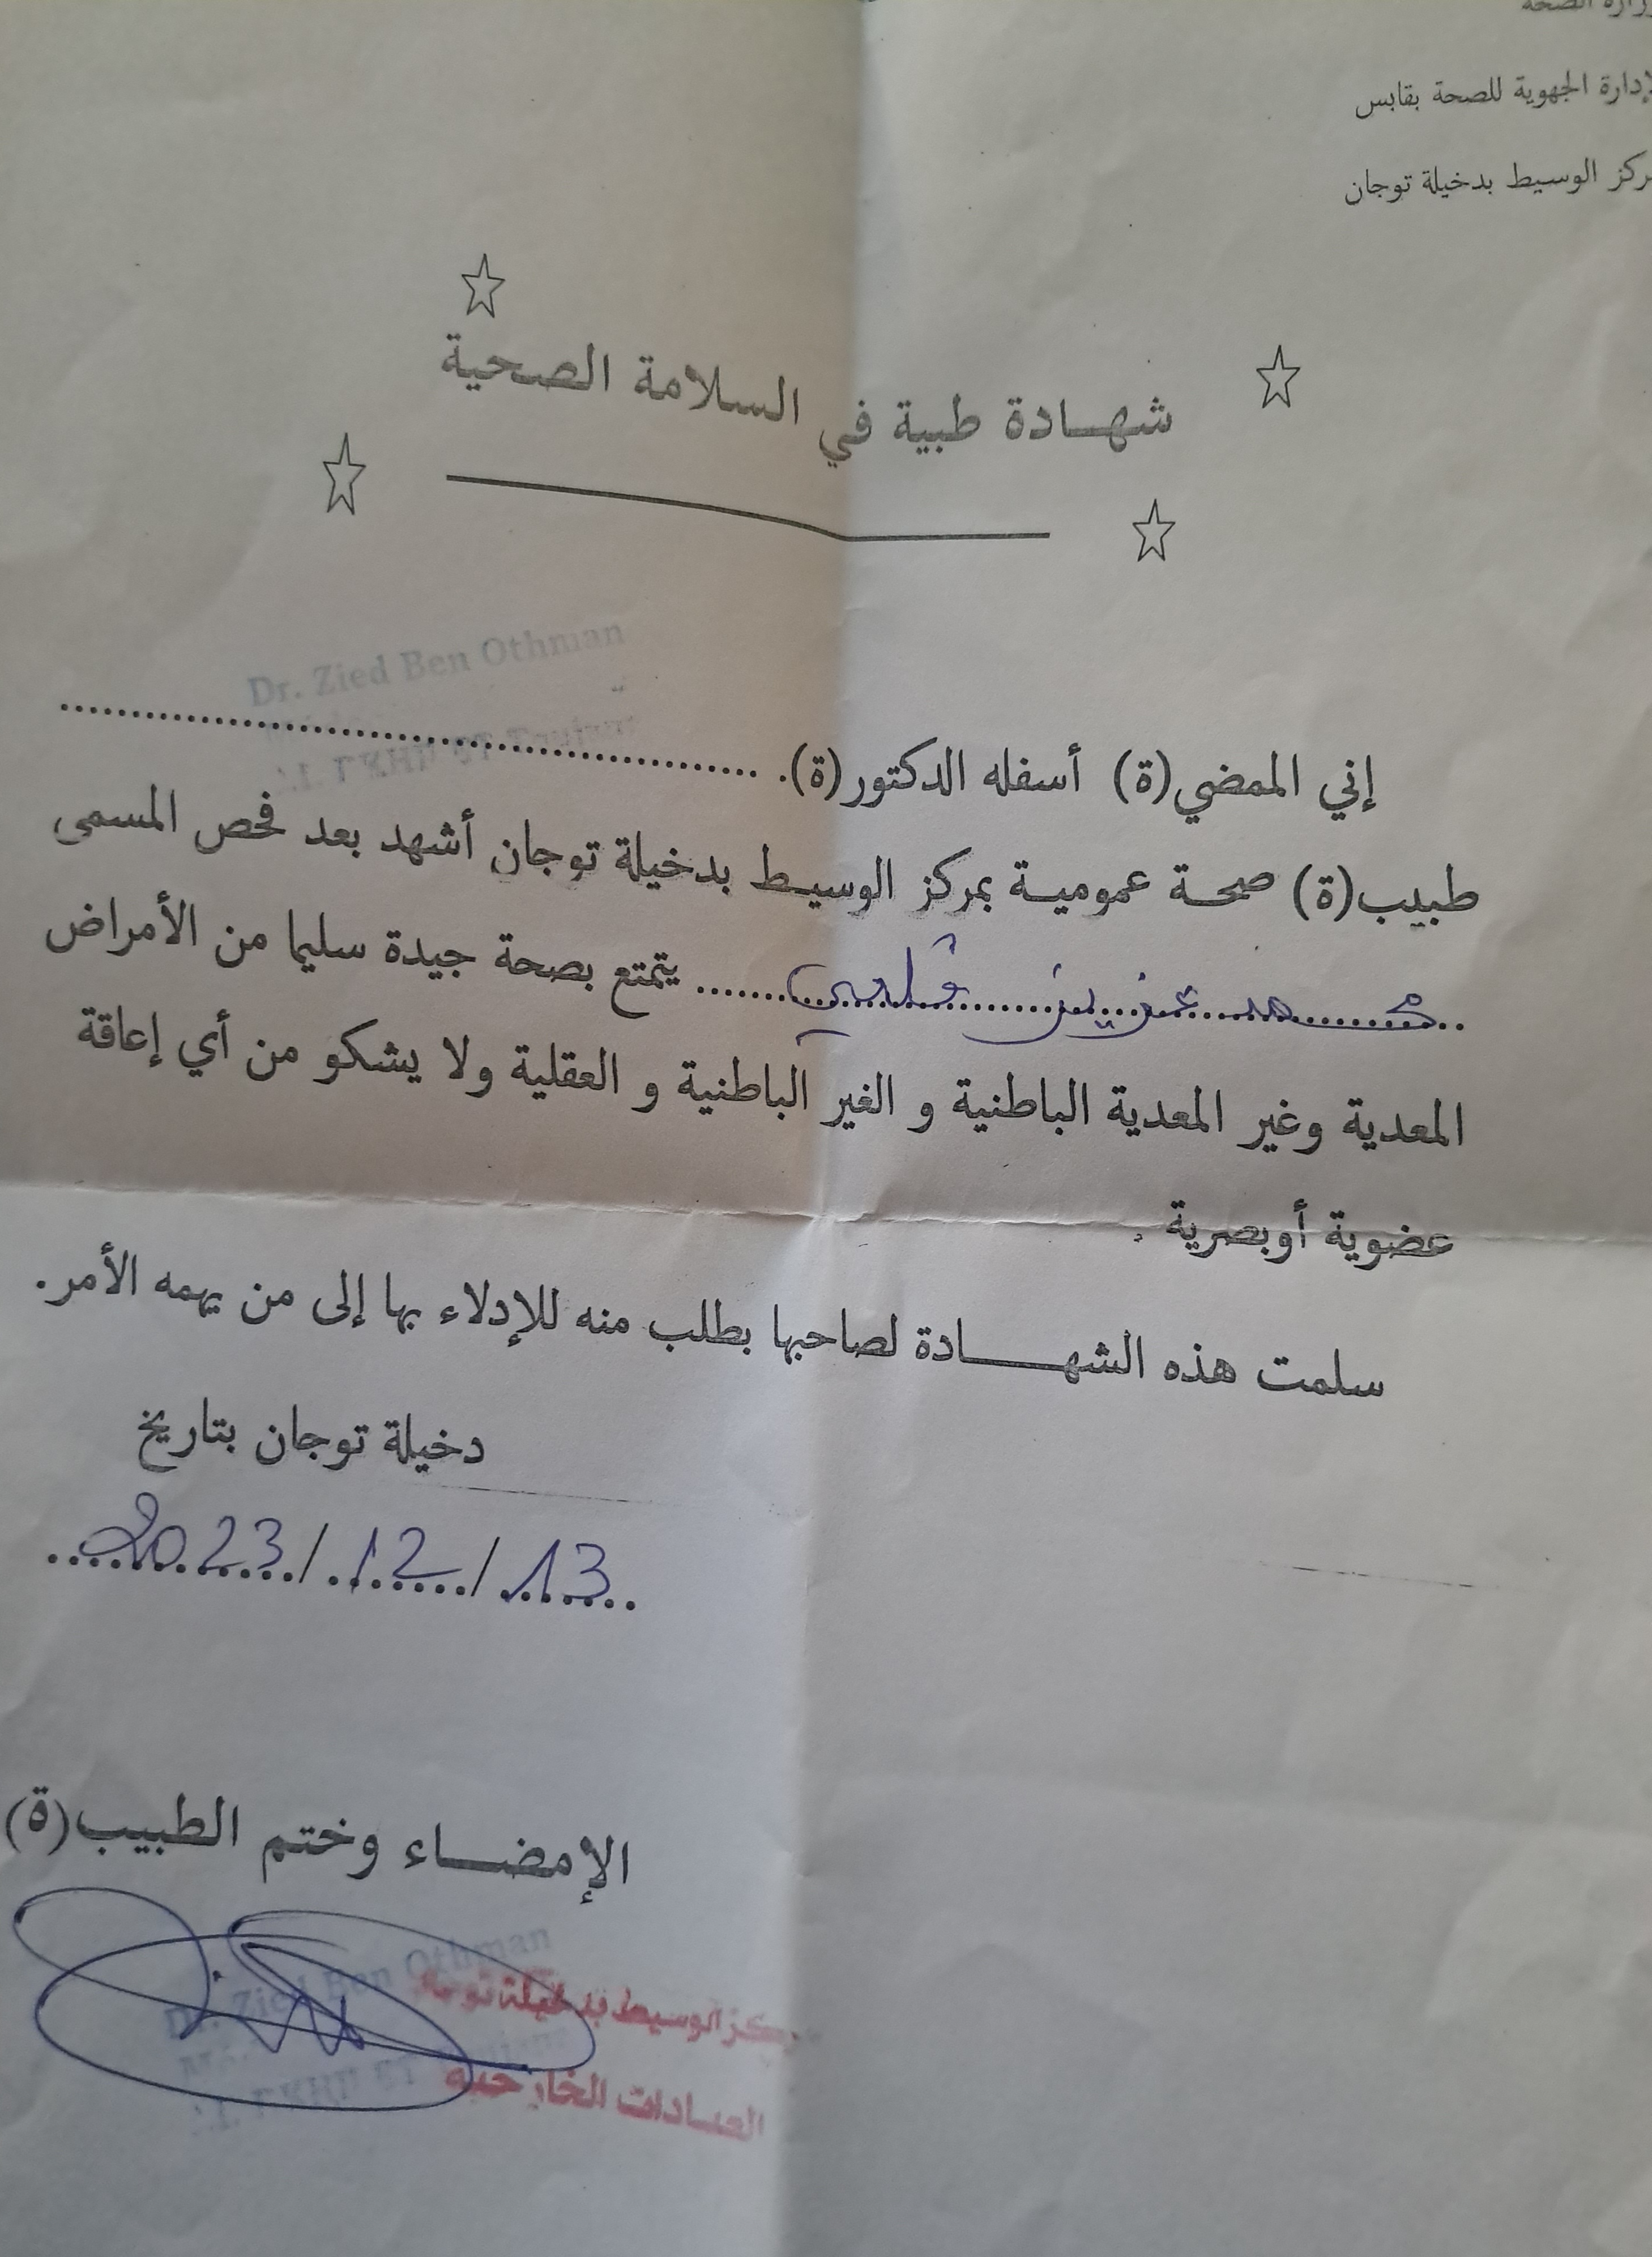 وزارة الصحة
الإدارة الجهوية للصحة بقابس
مركز الوسيط بدخيلة توجان
شهـــادة طبية في السلامة الصحية
Dr. Zied Ben Othman
إني الممضي(ة) أسفله الدكتور(ة). ........................................
طبيب(ة) صحـة عموميـة بمركز الوسيـط بدخيلة توجان أشهد بعد فحص المسمى
محمد عزيز ........ يتمتع بصحة جيدة سليما من الأمراض
المعدية وغير المعدية الباطنية و الغير الباطنية و العقلية ولا يشكو من أي إعاقة
عضوية أوبصرية .
سلمت هذه الشهــــــادة لصاحبها بطلب منه للإدلاء بها إلى من يهمه الأمر.
دخيلة توجان بتاريخ
13/12/2023
الإمضـــاء وختم الطبيب(ة)
Dr. Zied Ben Othman
مركز الوسيط بدخيلة توجان
العيادات الخارجية